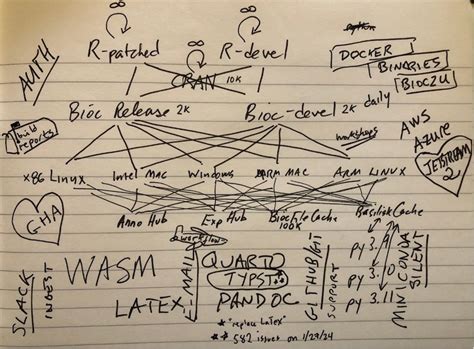 ∞ ∞
R-patched R-devel
AUTH
CRAN 10K
DOCKER
BINARIES
BIOC2U
Bioc Release 2K Bioc-devel 2K daily
build reports
workshops
AWS
Azure
JETSTREAM 2
x86 Linux Intel Mac Windows ARM MAC ARM LINUX
GHA
Anno Hub Exp Hub BiocFileCache BasiliskCache
100K
workflow
SLACK
INGEST
WASM
LATEX
E-MAIL
QUARTO
TYPST
PANDOC
GITHUB/GIT
SUPPORT
py 3.
py 3.
py 3.11
MINICONDA
SILENT
* "replace LaTeX"
* 582 issues on 1/29/24